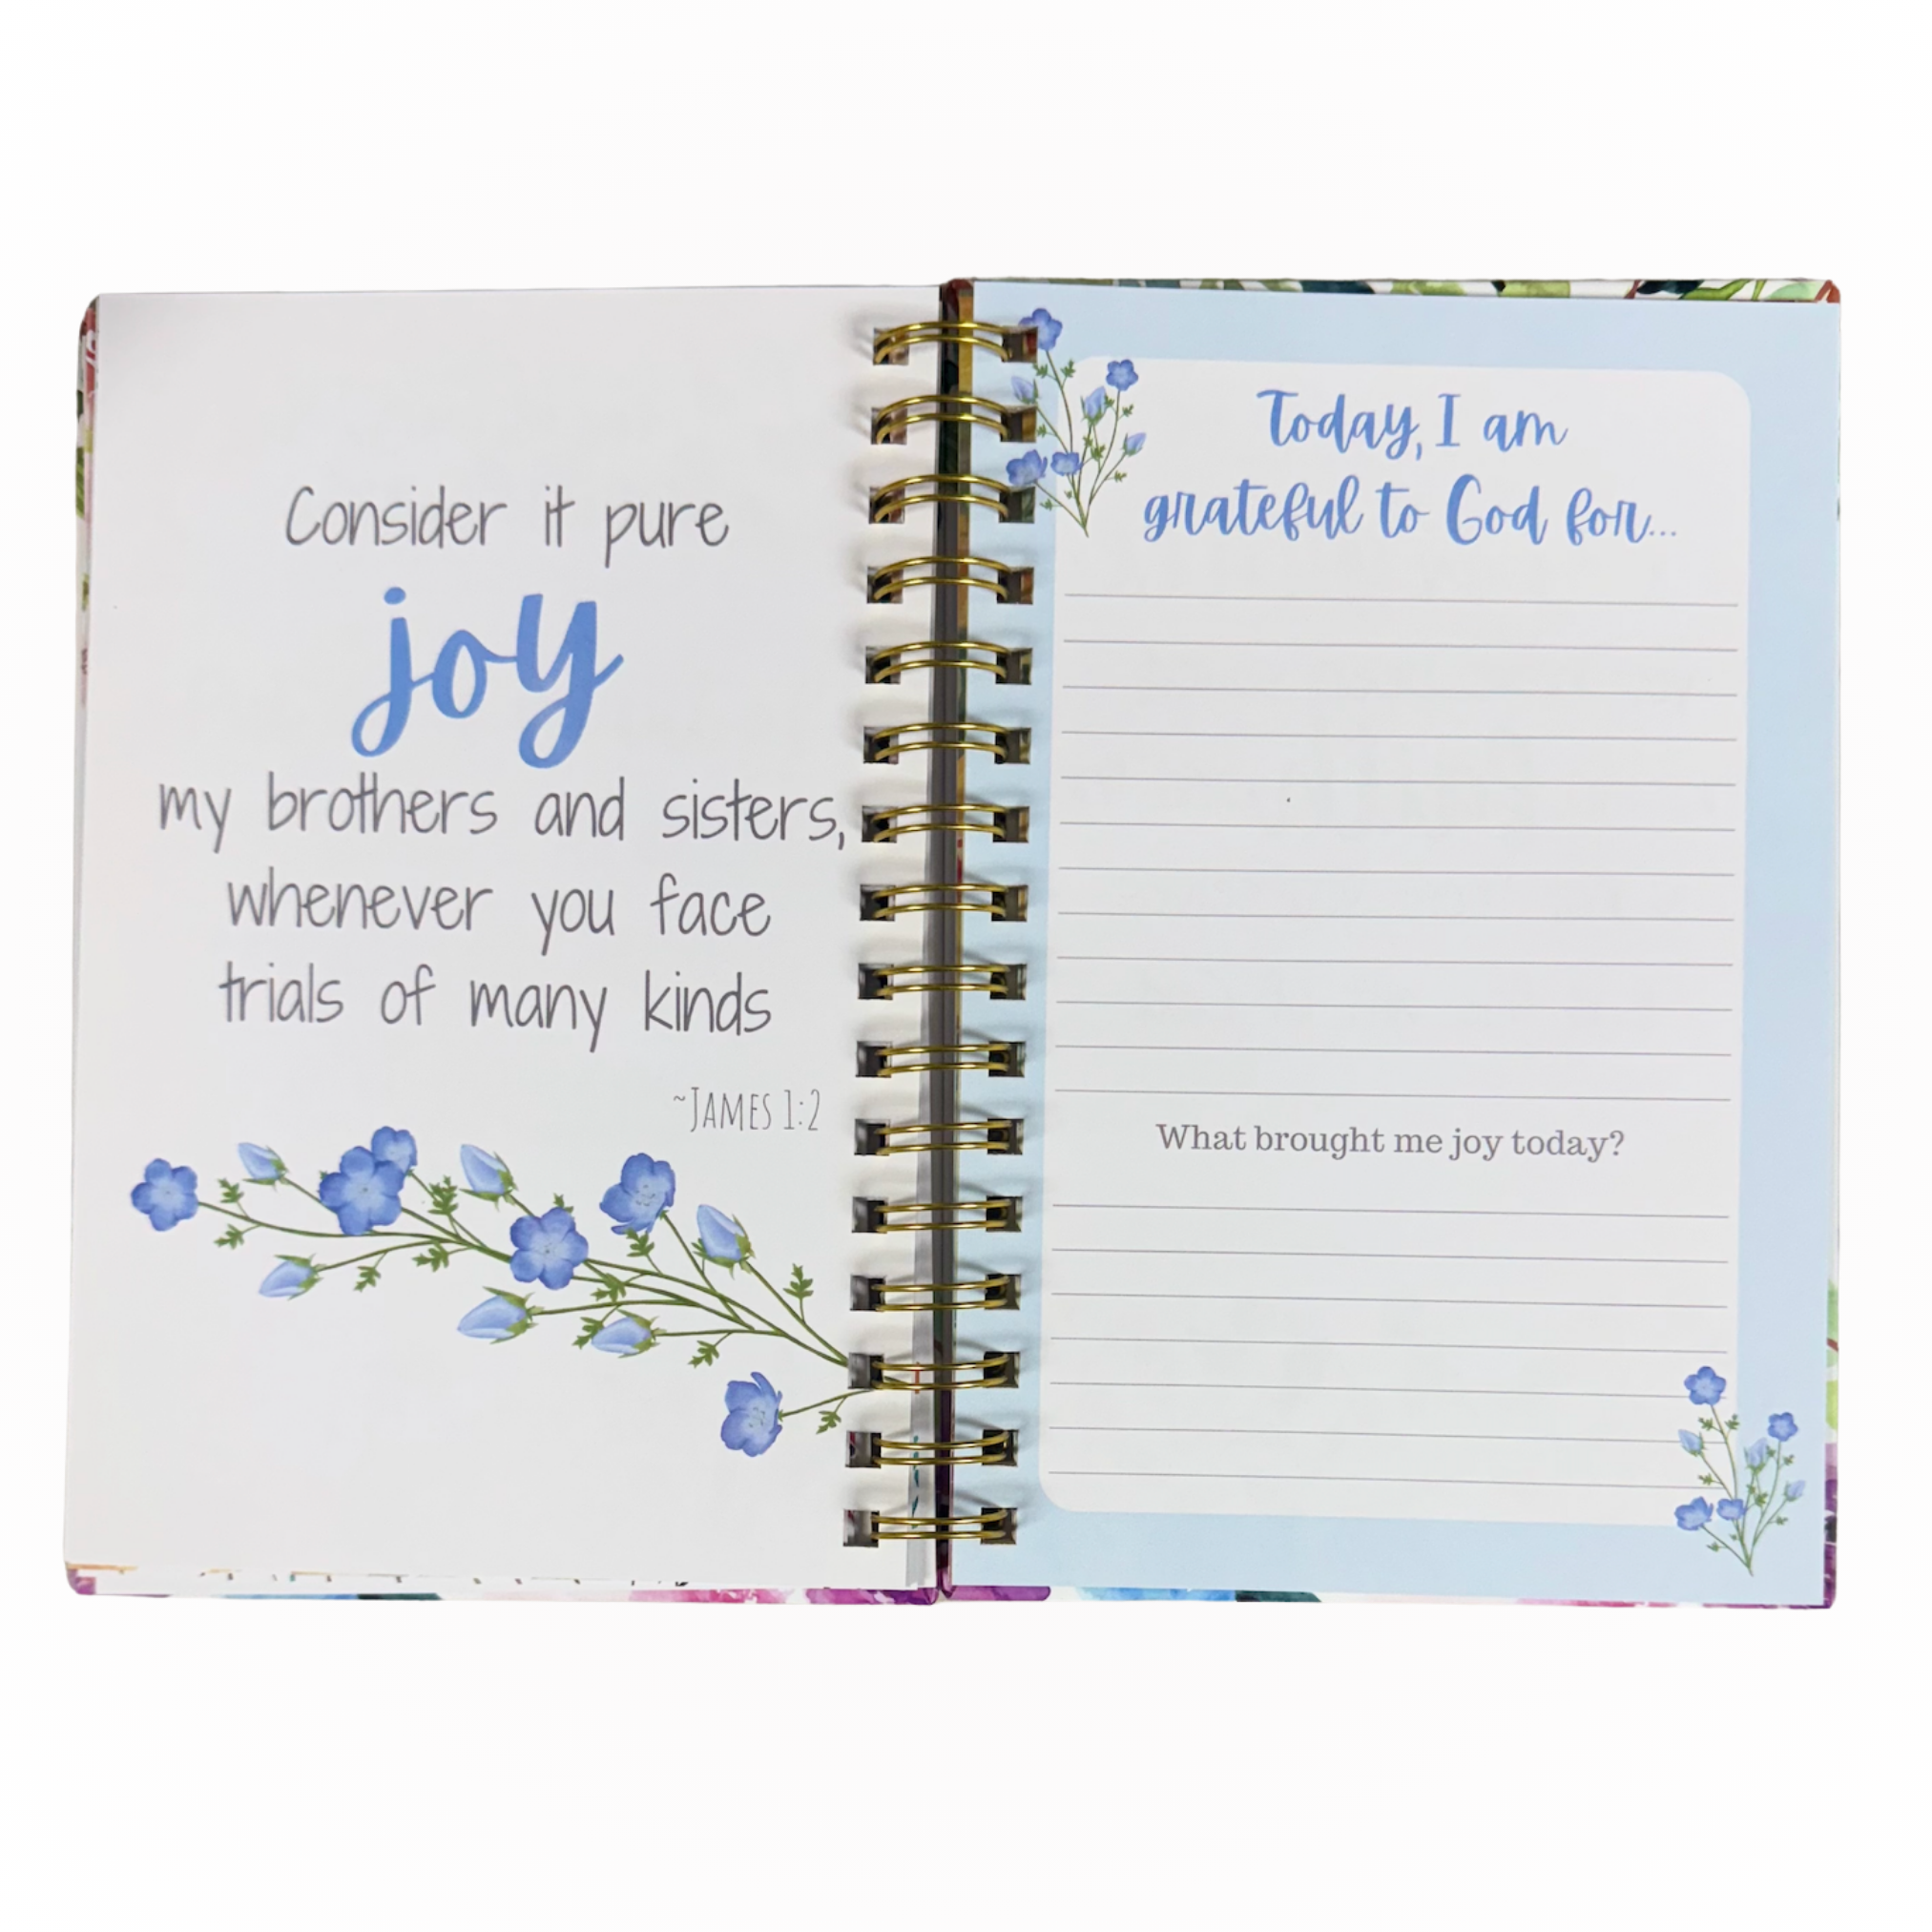 Consider it pure
joy
my brothers and sisters,
whenever you face
trials of many kinds
~JAMES 1:2
Today, I am
grateful to God for...
What brought me joy today?